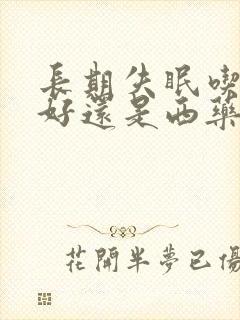 長期失眠喫
好還是西藥
花開半夢已傷